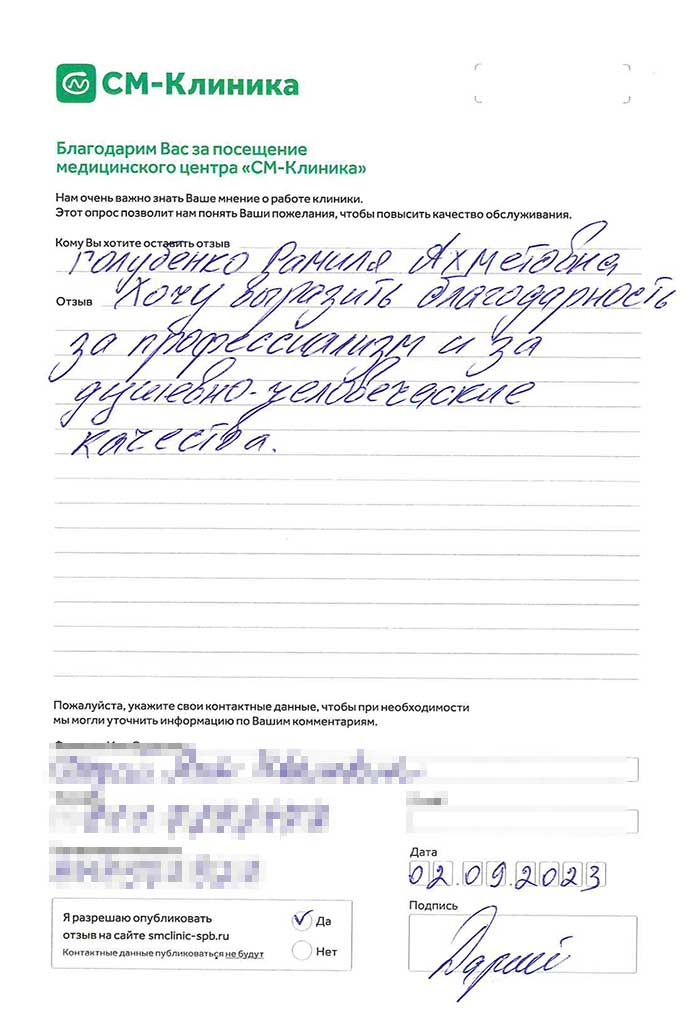 СМ-Клиника
Благодарим Вас за посещение
медицинского центра «СМ-Клиника»
Нам очень важно знать Ваше мнение о работе клиники.
Этот опрос позволит нам понять Ваши пожелания, чтобы повысить качество обслуживания.
Кому Вы хотите оставить отзыв
Голубенко Рамиля Ахметовна
Отзыв Хочу выразить благодарность
за профессианализм и за
душевно-человеческие
качества.
Пожалуйста, укажите свои контактные данные, чтобы при необходимости
мы могли уточнить информацию по Вашим комментариям.
Дата
02.09.2023
Подпись
Я разрешаю опубликовать
отзыв на сайте smclinic-spb.ru
Контактные данные публиковаться не будут
Да
Нет